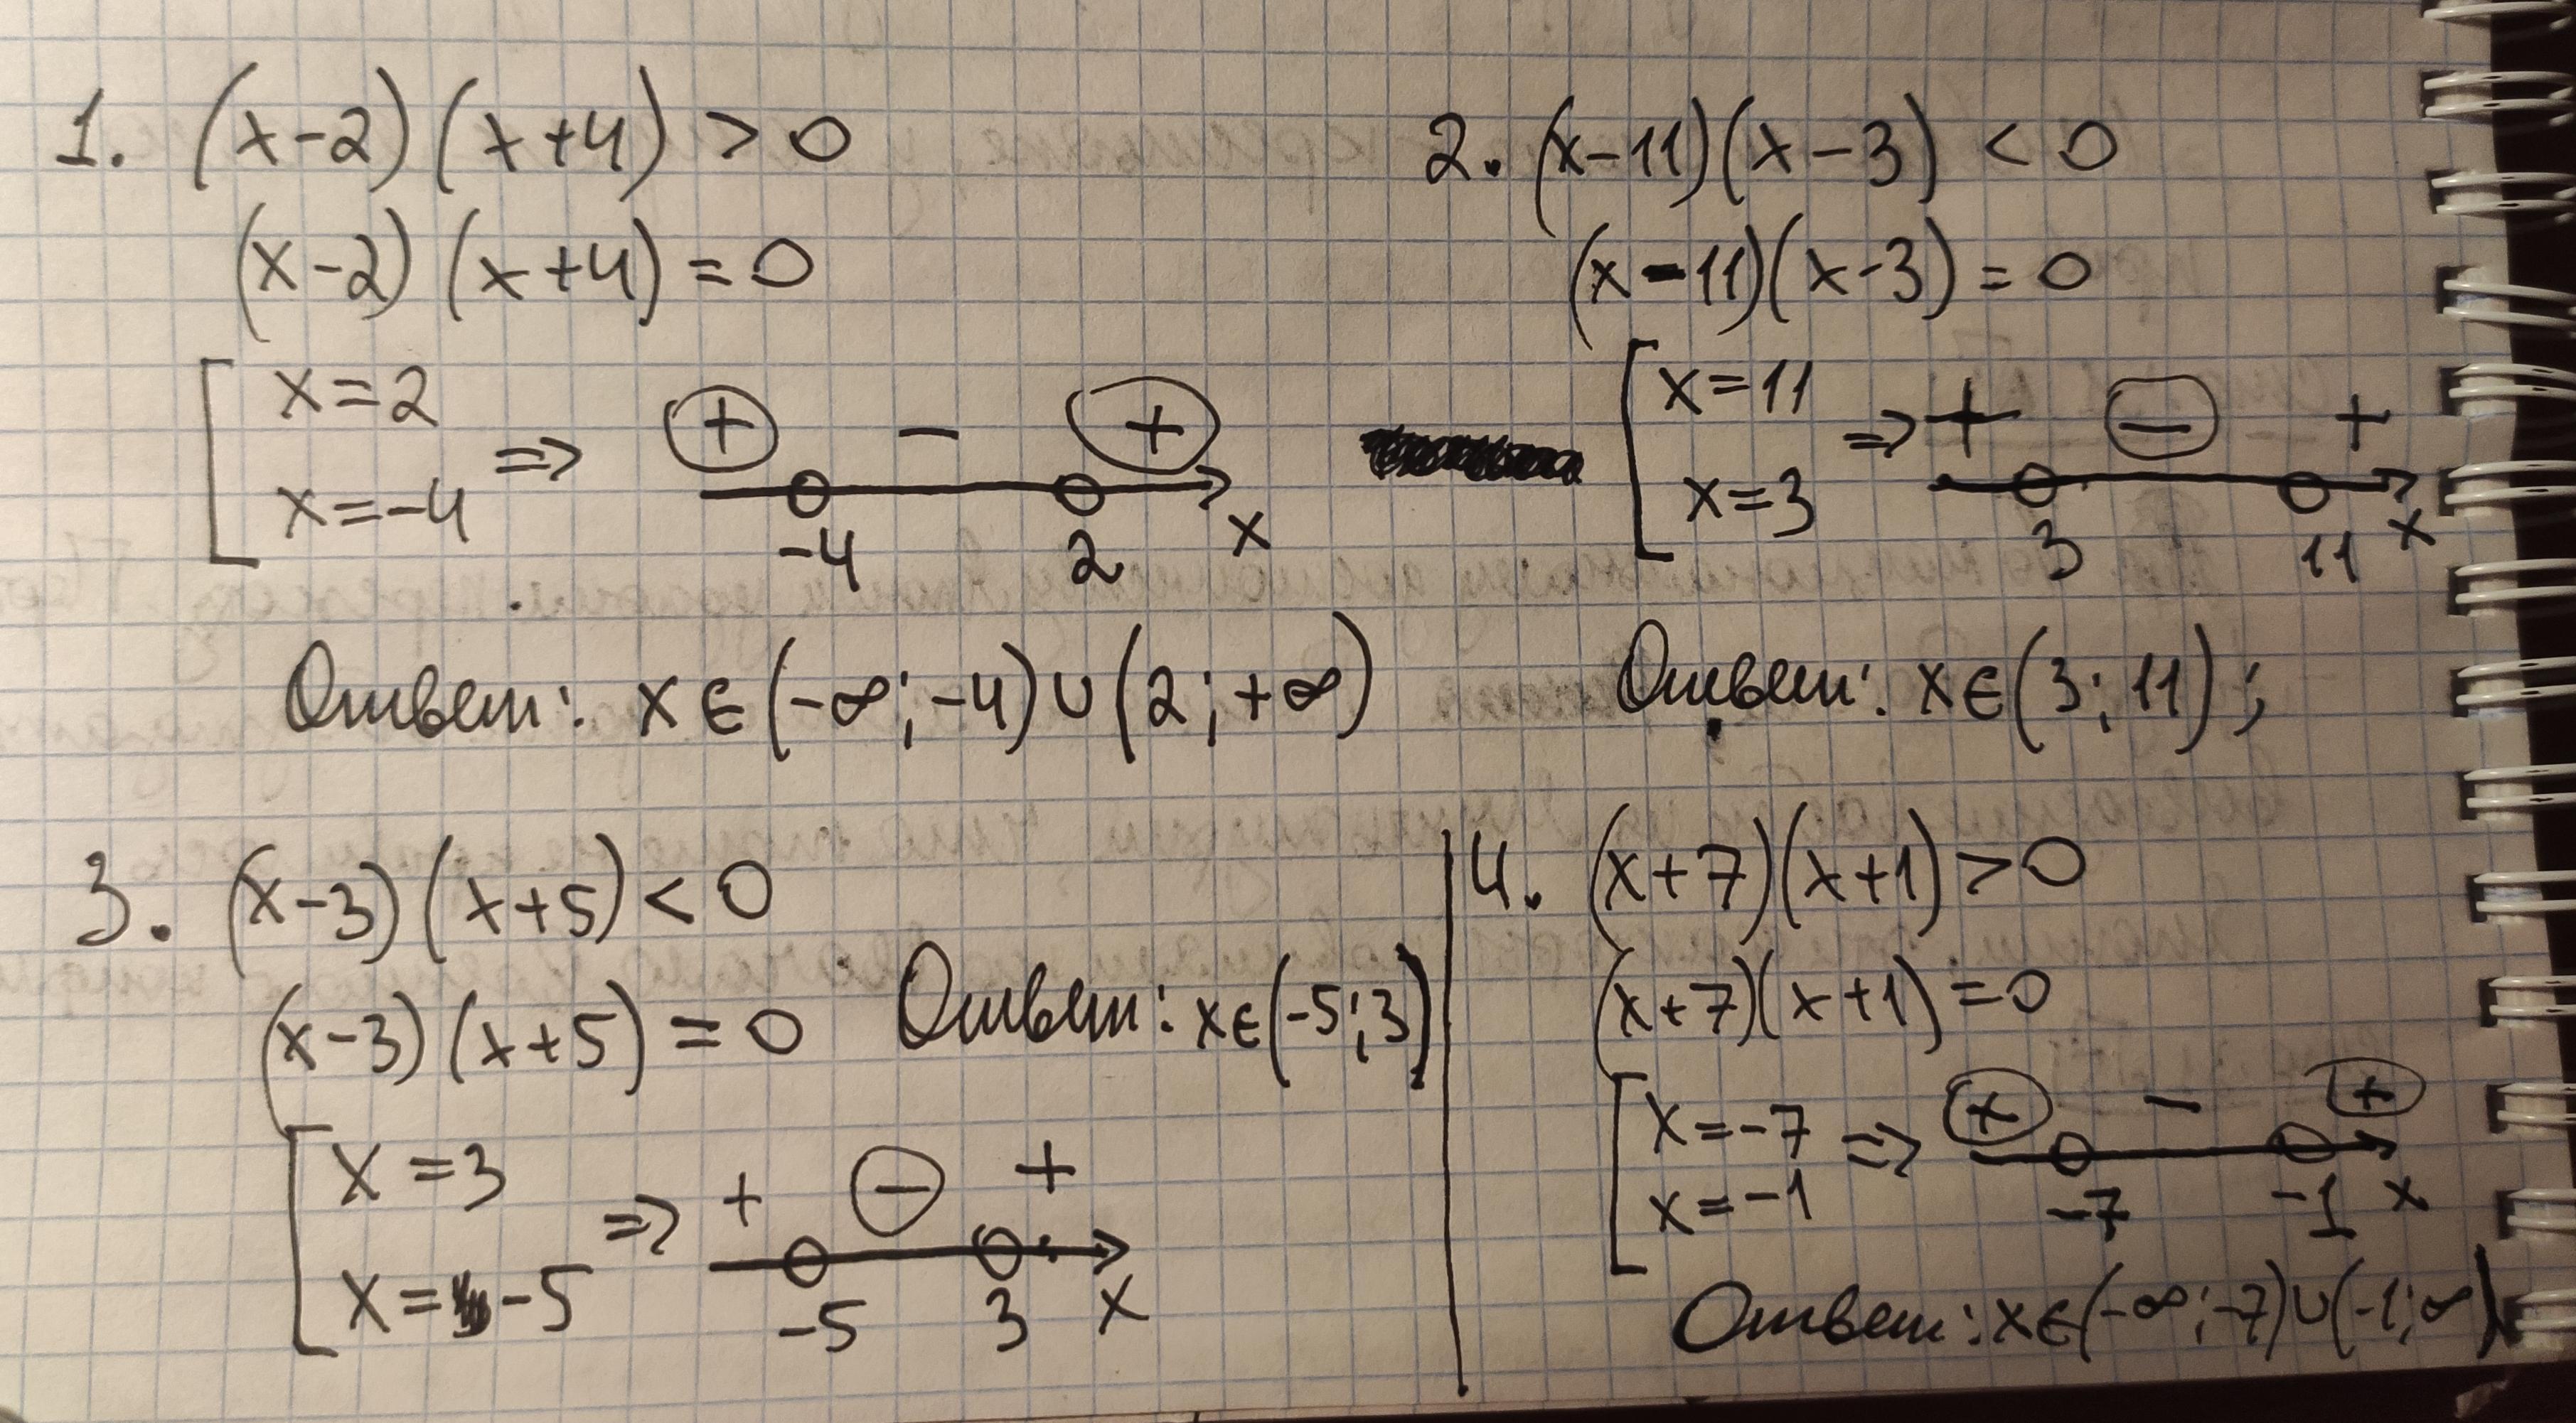 1. (x-2)(x+4)>0
(x-2)(x+4)=0
x=2
x=-4
=> + - +
-4 2 x
Ответ: x∈(-∞;-4)∪(2;+∞)
2. (x-11)(x-3)<0
(x-11)(x-3)=0
x=11
x=3
=> + - +
3 11 x
Ответ: x∈(3;11);
3. (x-3)(x+5)<0
(x-3)(x+5)=0
x=3
x=-5
=> + - +
-5 3 x
Ответ: x∈(-5;3)
4. (x+7)(x+1)>0
(x+7)(x+1)=0
x=-7
x=-1
=> + - +
-7 -1 x
Ответ: x∈(-∞;-7)∪(-1;∞)